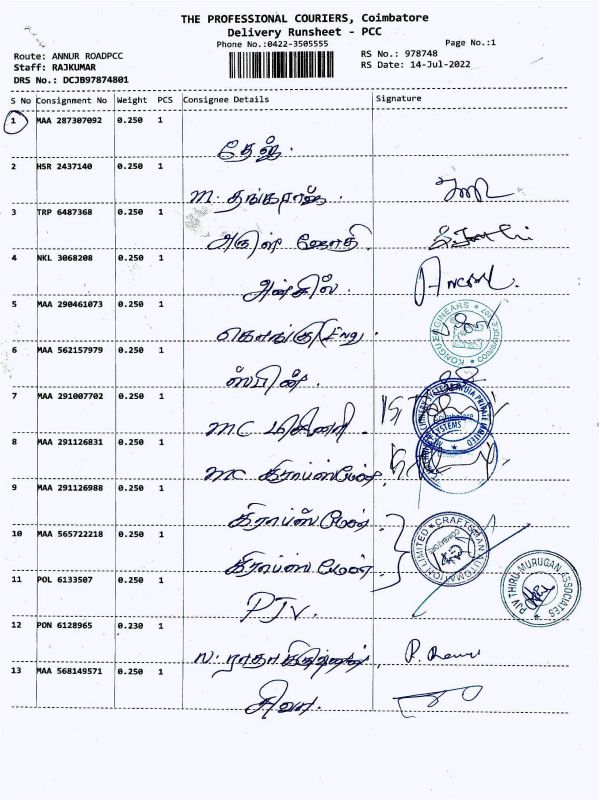 THE PROFESSIONAL COURIERS, Coimbatore
Delivery Runsheet - PCC
Phone No.:0422-3505555
Page No.:1
Route: ANNUR ROADPCC
RS No.: 978748
Staff: RAJKUMAR
RS Date: 14-Jul-2022
DRS No.: DCJB97874801
S No Consignment No Weight PCS Consignee Details Signature
1 MAA 287307092 0.250 1
தேஜ்.
2 HSR 2437140 0.250 1
M. தங்கராஜ்.
3 TRP 6487368 0.250 1
அருள் ஜோதி.
4 NKL 3068208 0.250 1
அன்சில்.
5 MAA 290461073 0.250 1
கொங்கு
KONGU ENGINEERS
6 MAA 562157979 0.250 1
ஸ்பின்.
7 MAA 291007702 0.250 1
MC மிஷினரி.
8 MAA 291126831 0.250 1
MC கிராப்ஸ்மேன்.
9 MAA 291126988 0.250 1
கிராப்ஸ் மேன்.
10 MAA 565722218 0.250 1
கிராப்ஸ் மேன்.
CRAFTSMAN AUTOMATION LIMITED
11 POL 6133507 0.250 1
PJV.
PJV THIRU MURUGAN ASSOCIATES
12 PON 6128965 0.230 1
N. ராதாகிருஷ்ணன்.
13 MAA 568149571 0.250 1
சிவா.